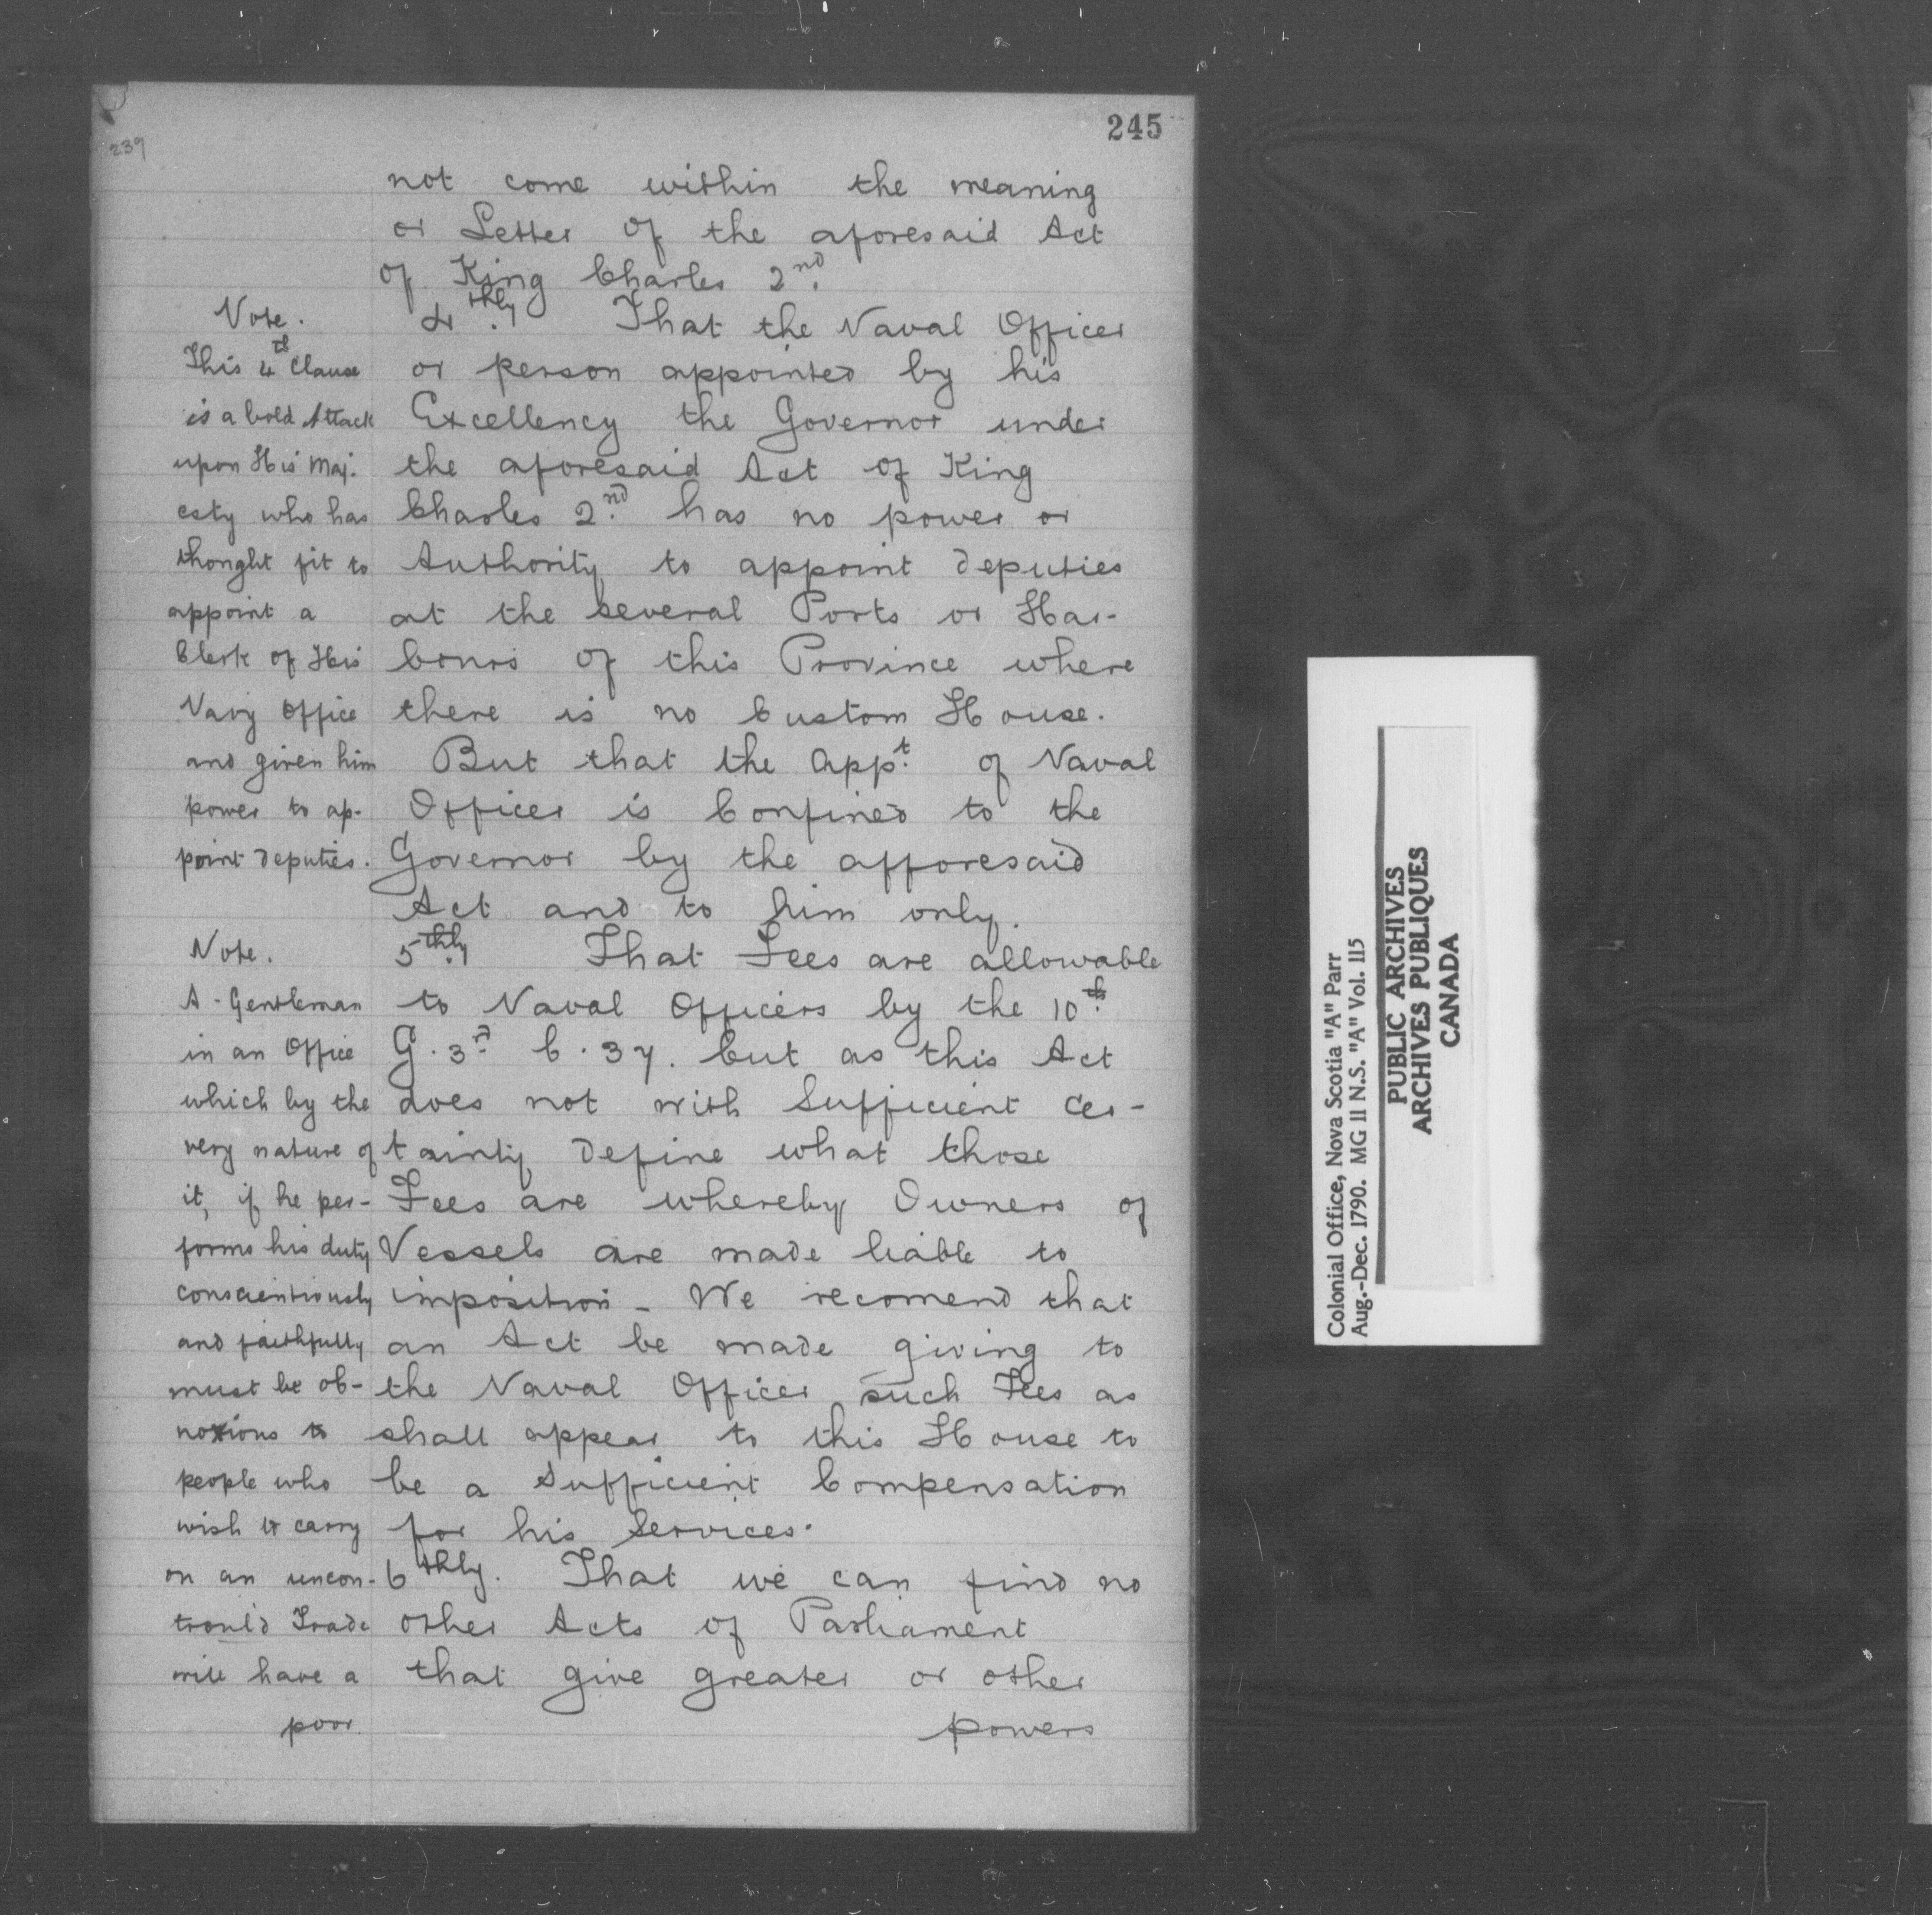 245
239
not come within the meaning
or Letter of the aforesaid Act
of King Charles 2nd.
4thly. That the Naval Officer
or person appointed by his
Excellency the Governor under
the aforesaid Act of King
Charles 2nd. has no power or
Authority to appoint deputies
at the several Ports or Har-
bours of this Province where
there is no Custom House.
But that the Appt. of Naval
Officer is Confined to the
Governor by the afforesaid
Act and to him only.
5thly. That Fees are allowable
to Naval Officers by the 10th.
G. 3rd. C. 37. but as this Act
does not with Sufficient cer-
tainty define what those
Fees are whereby Owners of
Vessels are made liable to
imposition - We recomend that
an Act be made giving to
the Naval Officer such Fees as
shall appear to this House to
be a Sufficient Compensation
for his Services.
6thly. That we can find no
other Acts of Parliament
that give greater or other
powers
Note.
This 4th Clause
is a bold Attack
upon His Maj-
esty who has
thought fit to
appoint a
Clerk of His
Navy Office
and given him
power to ap-
point deputies.
Note.
A Gentleman
in an Office
which by the
very nature of
it, if he per-
forms his duty
conscientiously
and faithfully
must be ob-
noxious to
people who
wish to carry
on an uncon-
troul'd Trade
will have a
poor
Colonial Office, Nova Scotia "A" Parr
Aug.-Dec. 1790. MG 11 N.S. "A" Vol. 115
PUBLIC ARCHIVES
ARCHIVES PUBLIQUES
CANADA